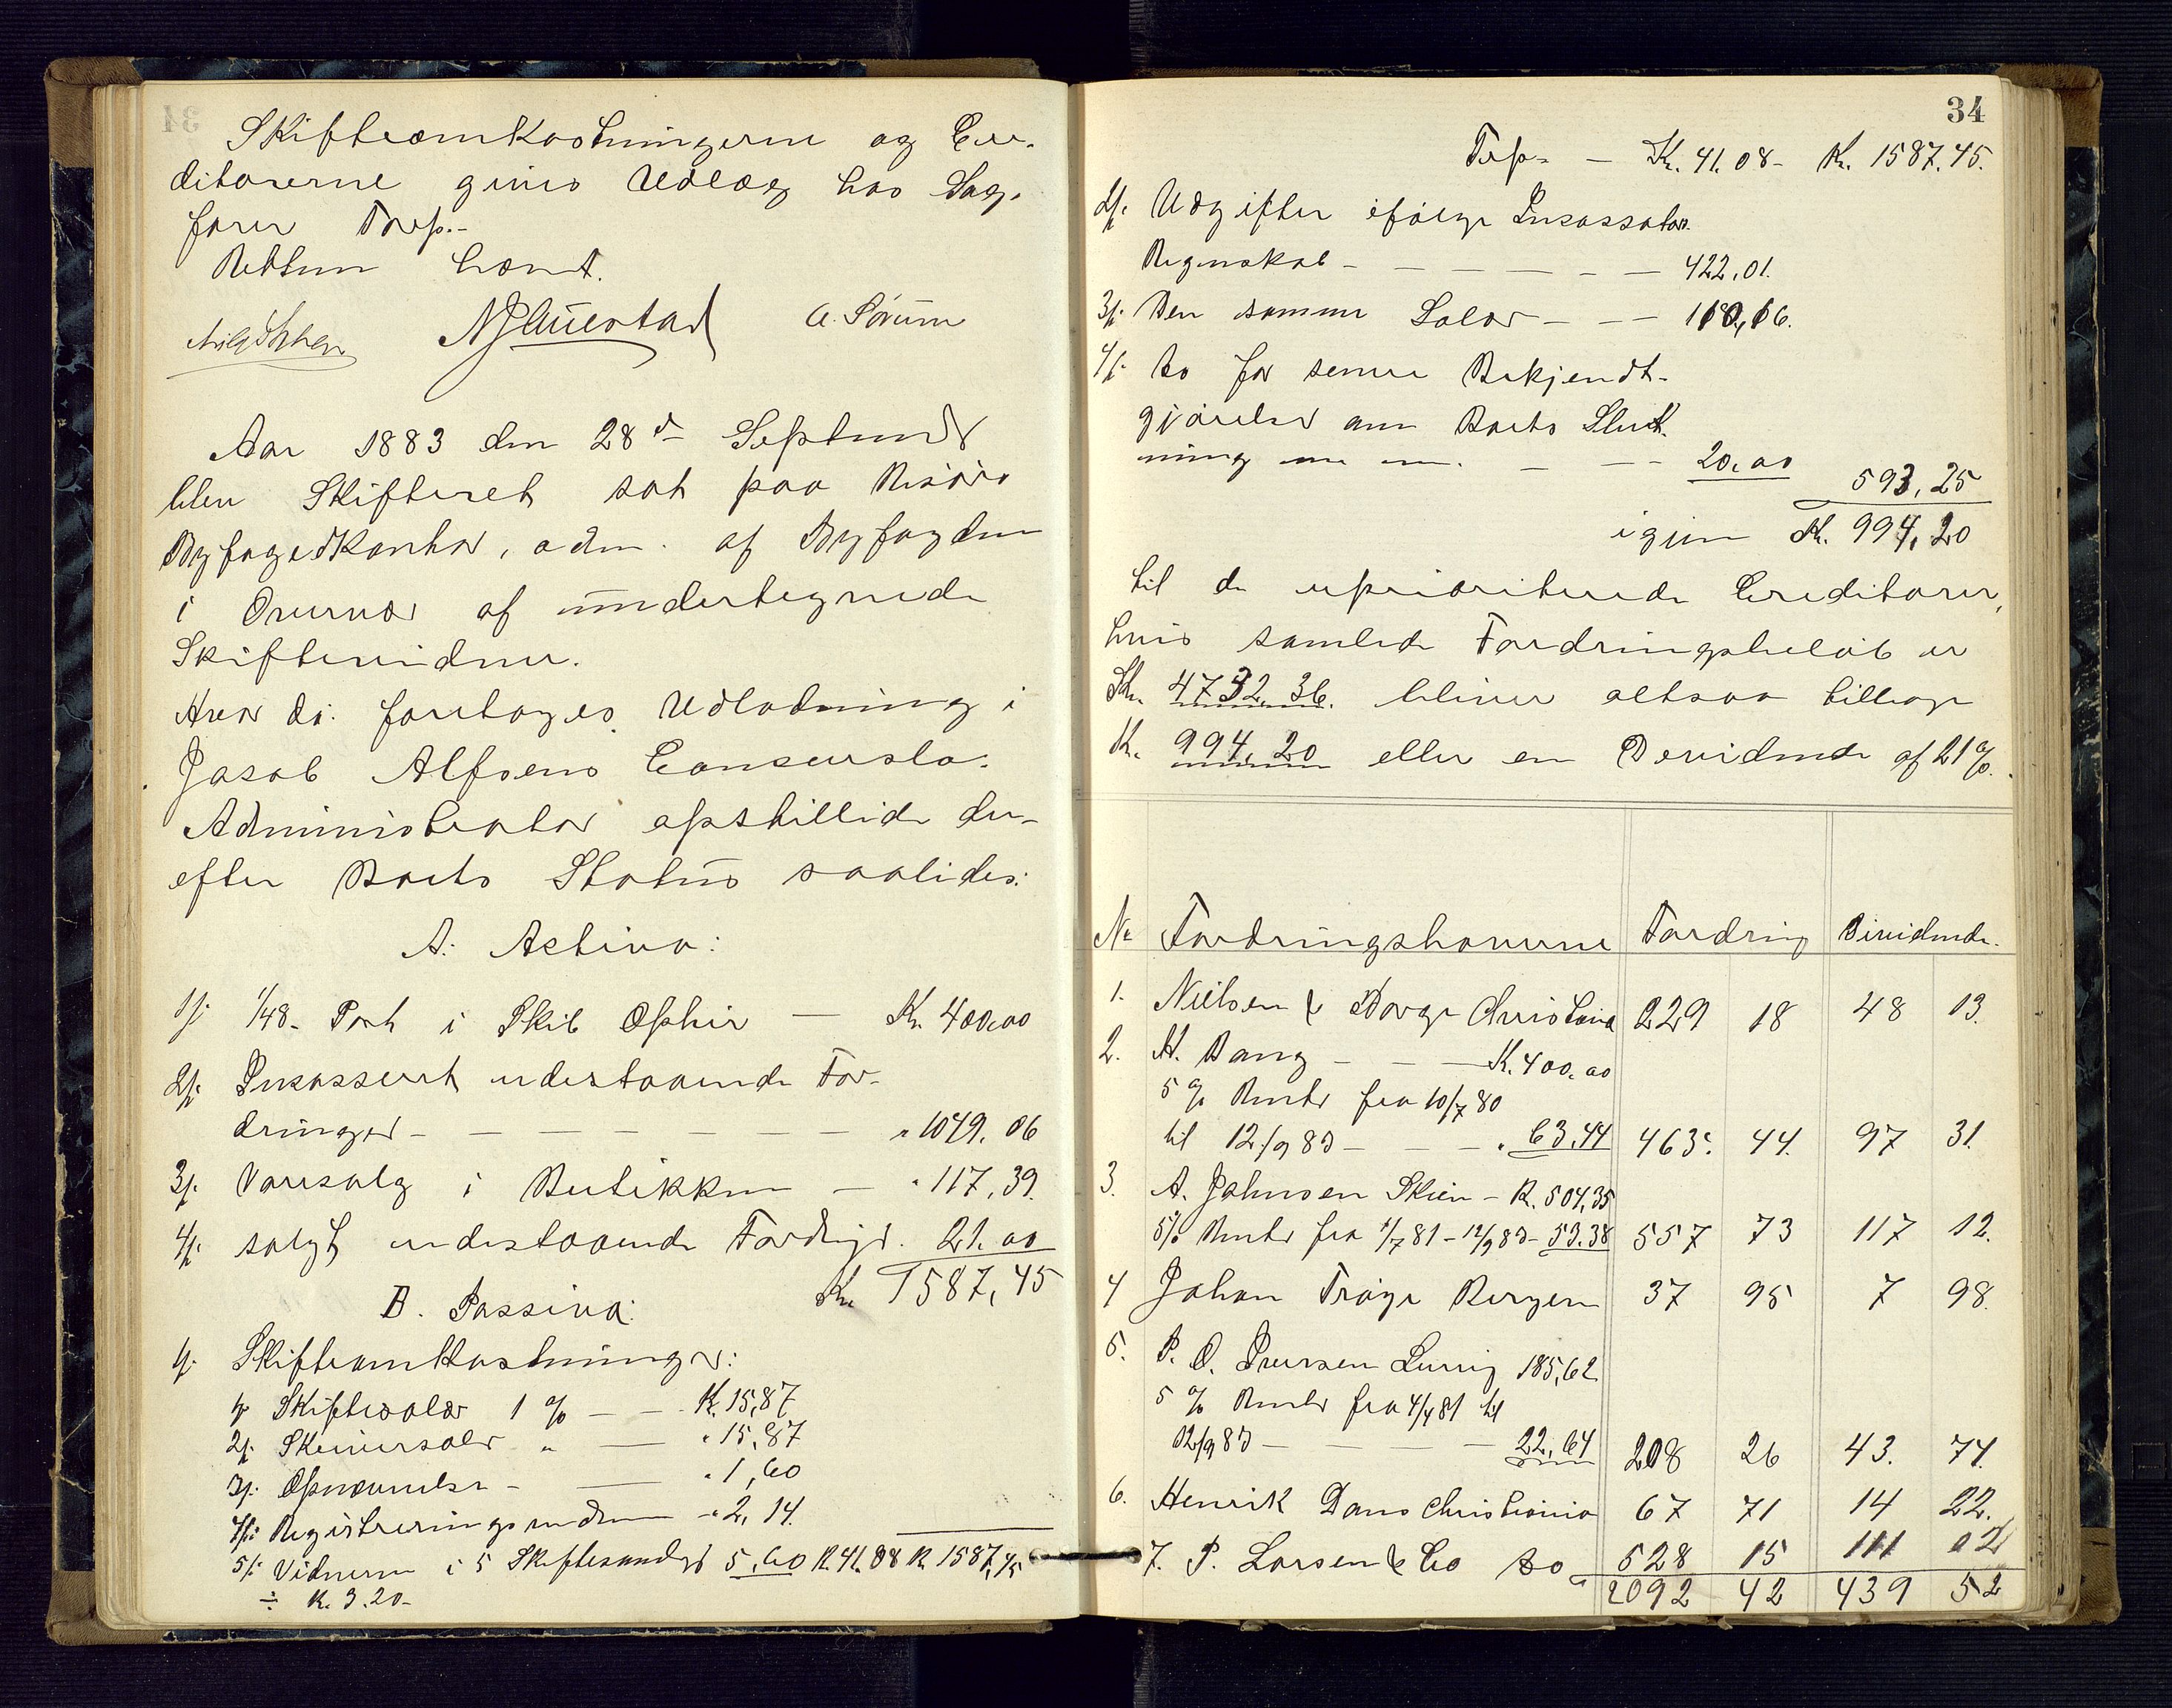 Skifteomkostningerne og Cre-
ditorerne gives Udlæg hos Sag-
fører Torp.-
Retten hævet.
NJHuestad A. Sørum
Aar 1883 den 28de September
blev Skifteret sat paa Risørs
Byfogedkontor, adm. af Byfogden
i Overvær af undertegnede
Skiftevidner.
Hvor da foretoges Udlodning i
Jacob Alfsens Concursbo.
Administrator opstillede der-
efter Boets Status saaledes:
A. Activa:
1/. 1/48 Part i Skib Ophir — Kr. 400.00
2/. Incasseret udestaaende For-
dringer - — — — — — " 1049.06
3/. Varesalg i Butikken — " 117,39.
4/. solgt udestaaende Fordrigr. 21.00
Kr. 1587,45
B. Passiva:
1/. Skifteomkostninger:
1/. Skiftesalær 1 % — — K. 15,87
2/. Skriversalær " — " 15,87
3/. Opnævnelse - — " 1,60
4/. Registreringsmænd - " 2,14.
5/. Vidnerne i 5 Skiftesamlgr 5,60 K. 41.08 K. 1587,45
÷ K. 3.20-
34
Trsp. — K. 41.08 - Kr. 1587.45.
2/. Udgifter ifølge Incassator
Regnskab - — — — — — 422,01.
3/. Den samme Salær — — — 110,16.
4/. Do for senere Bekjendt-
gjørelser om Boets Slut-
ning m m. — — — 20.00
593,25
igjen Kr. 994,20
til de uprioriterede Creditorer,
hvis samlede Fordringsbeløb er
Kr. 4732,36. bliver altsaa tilbage
Kr. 994,20 eller en Devidende af 21%.
No Fordringshaverne Fordring Dividende.
1. Nielsen & Borge Christania 229 18 48 13.
2. H. Bang - — — K. 400.00
5 % Renter fra 10/7 80
til 12/9 83 — — — " 63.44 463. 44. 97 31.
3. A. Johnsen Skien - K. 504,35
5% Renter fra 1/7 81 - 12/9 83 - 53.38 557 73 117 12.
4 Johan Trøye Bergen 37 95 7 98.
5. P. O. Iversen Lurvig 185,62
5 % Renter fra 4/4 81 til
12/9 83 — — — — 22,64 208 26 43. 74.
6. Henrik Dans Christiania 67 71 14 22.
7. P. Larsen & Co Do 528 15 111 02
2092 42 439 52